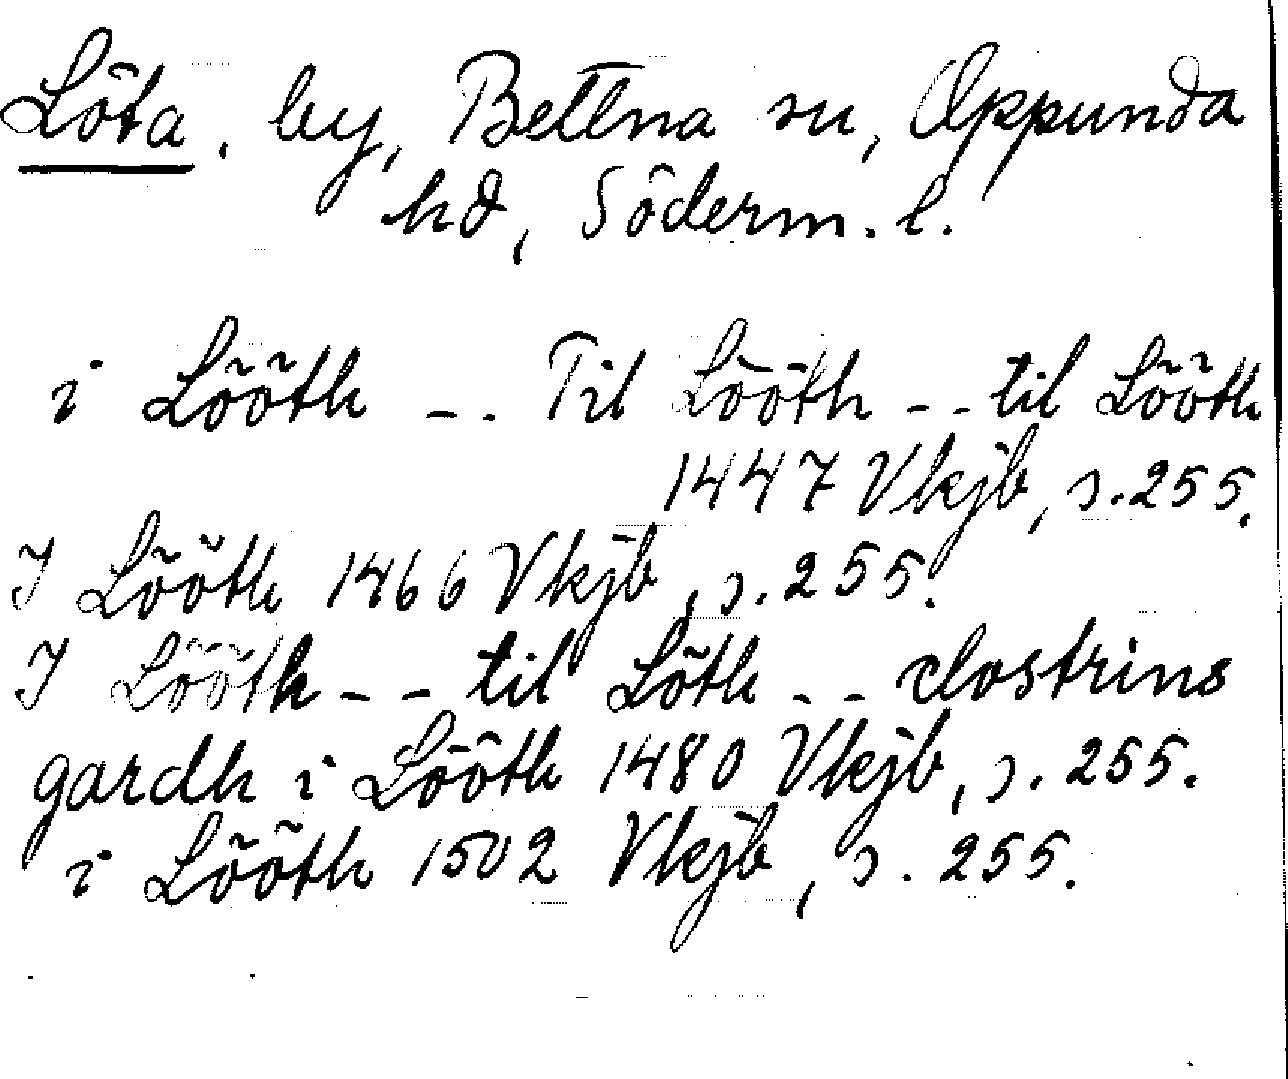 Löta, by, Bettna sn, Oppunda
hd, Söderm. l.
i Lööth -- Til Lööth -- til Lööth
1447 Vkjb, s. 255.
I Lööth 1466 Vkjb, s. 255.
I Lööth -- til Löth -- clostrins
gardh i Lööth 1480 Vkjb, s. 255.
i Lööth 1502 Vkjb, s. 255.